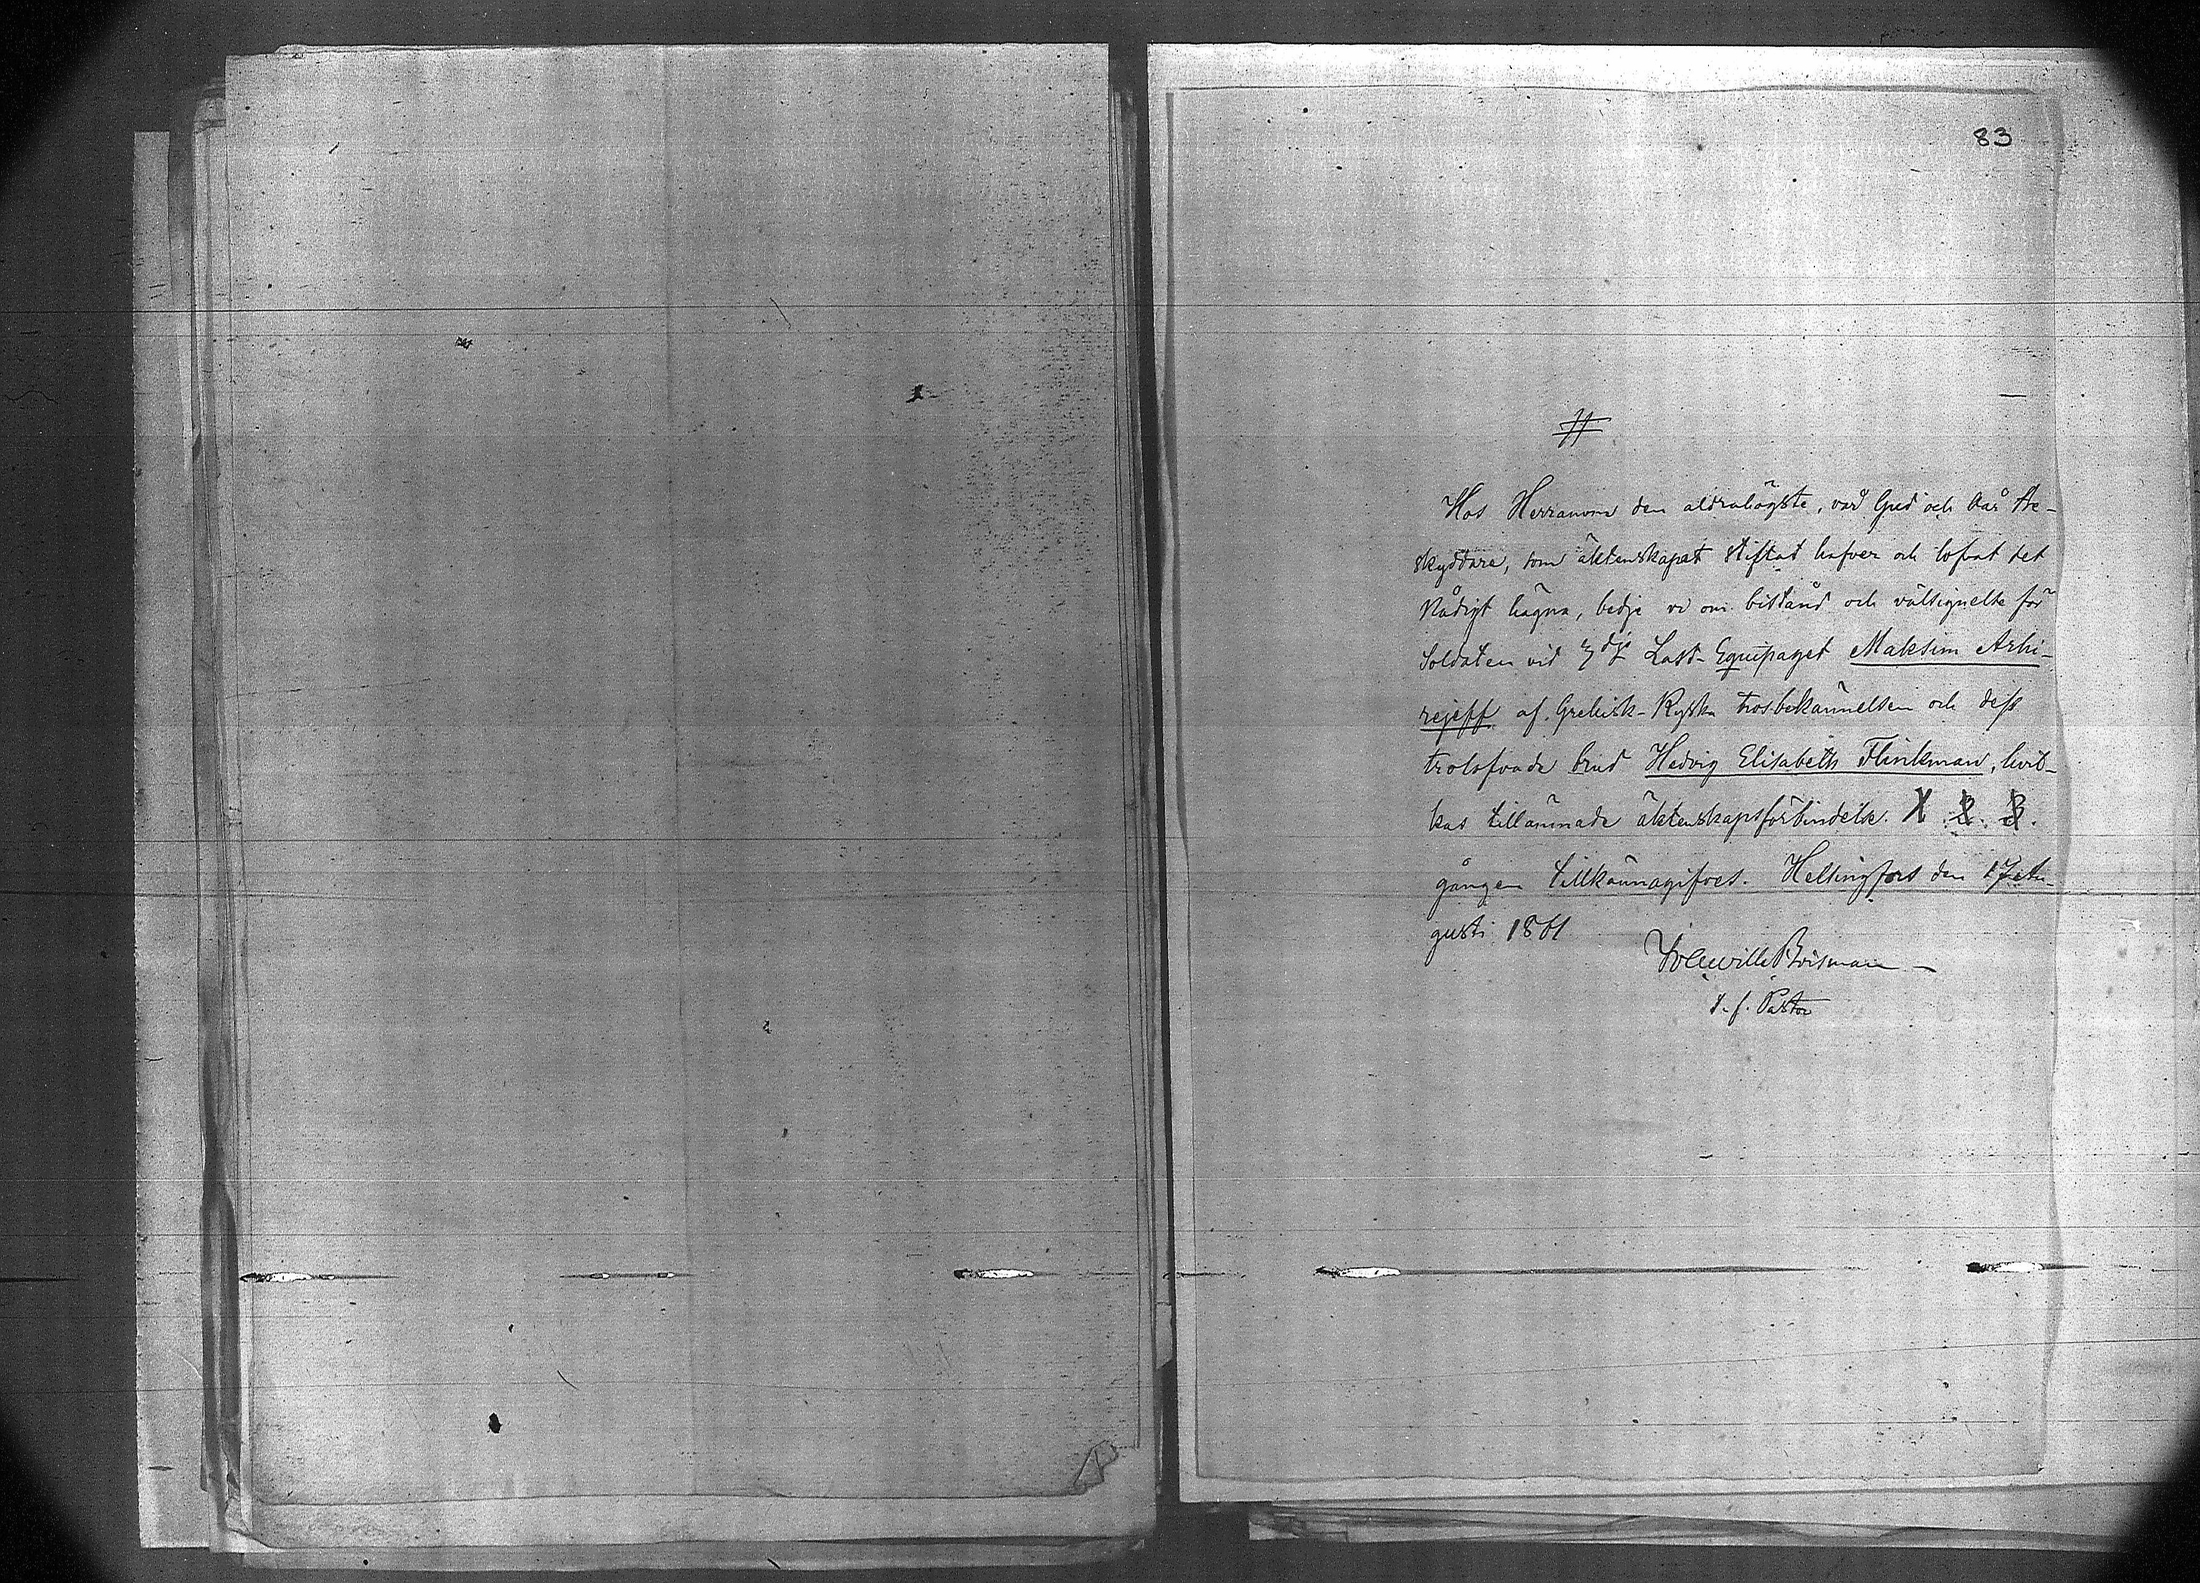 83
Hos Herranom den aldrahögste, vår Gud och vår Be-
skyddare, som äktenskapet stiftat hafver och lofvat det
Nådigt hägna, bedje vi om bistånd och välsignelse för
Soldaten vid Last-Equipaget Maksim Arhi-
rejeff af Grekisk-Ryska trosbekännelsen och dess
trolofvade brud Hedvig Elisabeth Flinkman, hvil-
kas tillämnade äktenskapsförbindelse 1. 2. 3.
gången tillkännagifves. Helsingfors den 17 Au-
gusti 1861
Brisman
t. f. Pastor